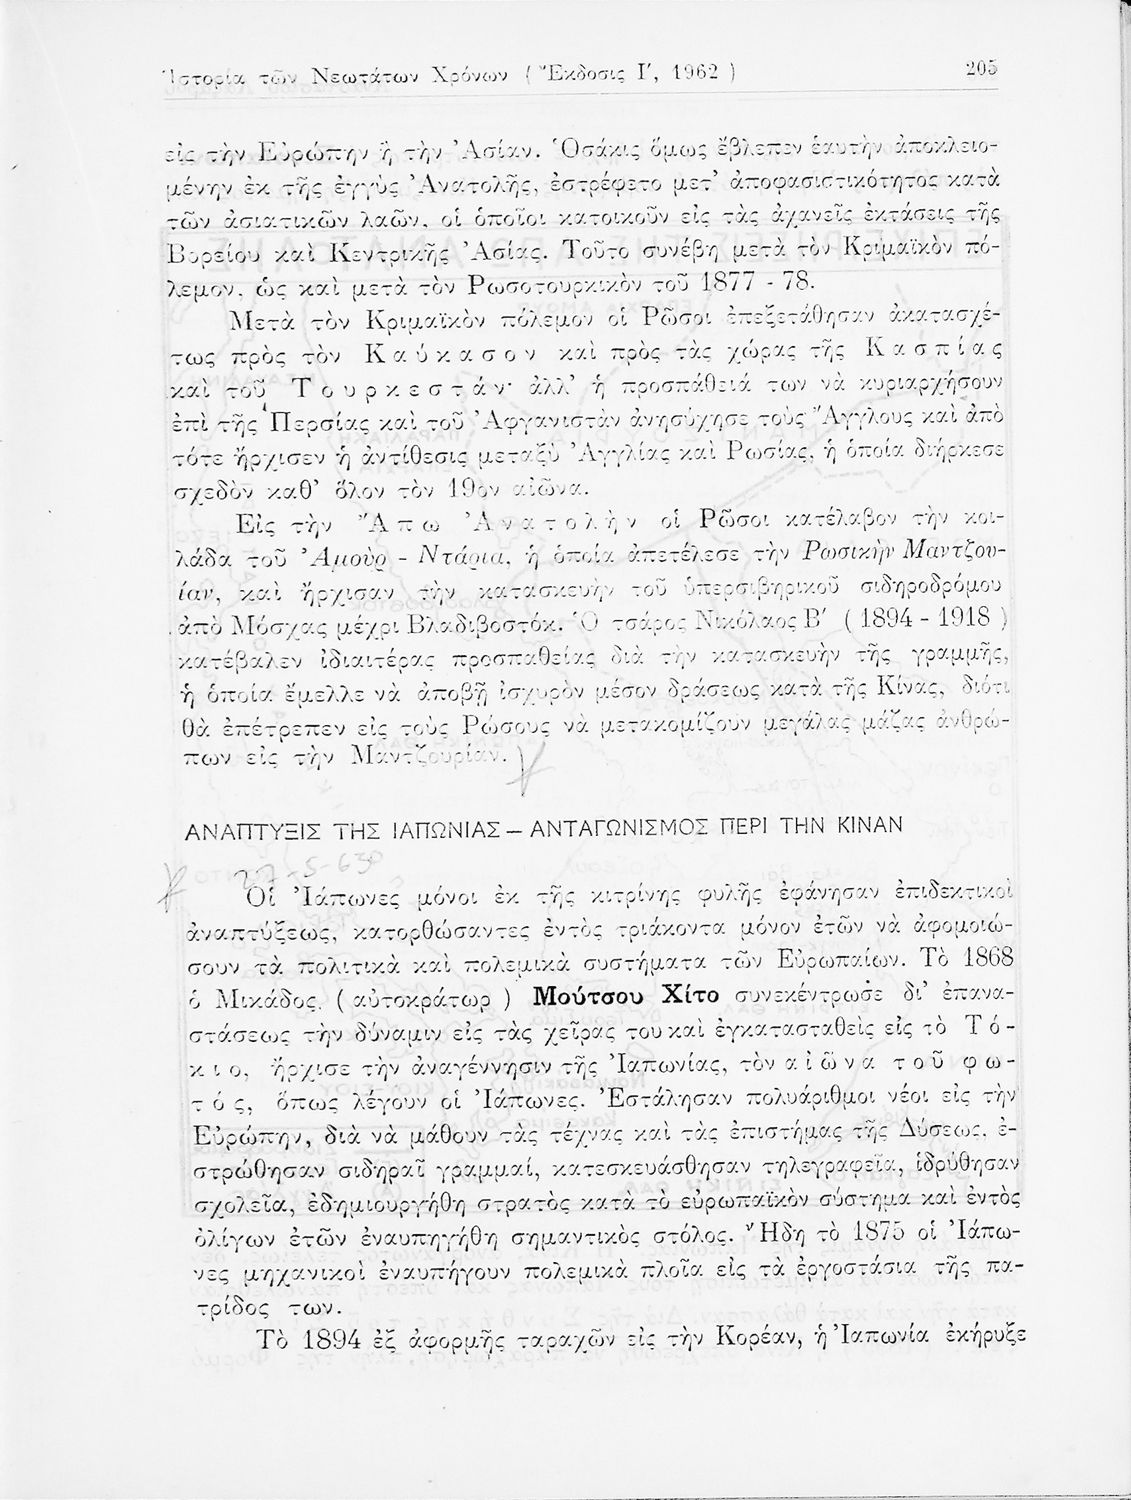 Ἱστορία τῶν Νεωτάτων Χρόνων ( Ἔκδοσις Γ', 1962 ) 205
εἰς τὴν Εὐρώπην ἢ τὴν Ἀσίαν. Ὁσάκις ὅμως ἔβλεπεν ἑαυτὴν ἀποκλειο-
μένην ἐκ τῆς ἐγγὺς Ἀνατολῆς, ἐστρέφετο μετ' ἀποφασιστικότητος κατὰ
τῶν ἀσιατικῶν λαῶν, οἱ ὁποῖοι κατοικοῦν εἰς τὰς ἀχανεῖς ἐκτάσεις τῆς
Βορείου καὶ Κεντρικῆς Ἀσίας. Τοῦτο συνέβη μετὰ τὸν Κριμαϊκὸν πό-
λεμον, ὡς καὶ μετὰ τὸν Ρωσοτουρκικὸν τοῦ 1877 - 78.
Μετὰ τὸν Κριμαϊκὸν πόλεμον οἱ Ρῶσοι ἐπεξετάθησαν ἀκατασχέ-
τως πρὸς τὸν Καύκασον καὶ πρὸς τὰς χώρας τῆς Κασπίας
καὶ τοῦ Τουρκεστάν· ἀλλ' ἡ προσπάθειά των νὰ κυριαρχήσουν
ἐπὶ τῆς Περσίας καὶ τοῦ Ἀφγανιστὰν ἀνησύχησε τοὺς Ἄγγλους καὶ ἀπὸ
τότε ἤρχισεν ἡ ἀντίθεσις μεταξὺ Ἀγγλίας καὶ Ρωσίας, ἡ ὁποία διήρκεσε
σχεδὸν καθ' ὅλον τὸν 19ον αἰῶνα.
Εἰς τὴν Ἄπω Ἀνατολὴν οἱ Ρῶσοι κατέλαβον τὴν κοι-
λάδα τοῦ Ἀμοὺρ - Ντάρια, ἡ ὁποία ἀπετέλεσε τὴν Ρωσικὴν Μαντζου-
ίαν, καὶ ἤρχισαν τὴν κατασκευὴν τοῦ ὑπερσιβηρικοῦ σιδηροδρόμου
ἀπὸ Μόσχας μέχρι Βλαδιβοστόκ. Ὁ τσάρος Νικόλαος Β' ( 1894 - 1918 )
κατέβαλεν ἰδιαιτέρας προσπαθείας διὰ τὴν κατασκευὴν τῆς γραμμῆς,
ἡ ὁποία ἔμελλε νὰ ἀποβῇ ἰσχυρὸν μέσον δράσεως κατὰ τῆς Κίνας, διότι
θὰ ἐπέτρεπεν εἰς τοὺς Ρώσους νὰ μετακομίζουν μεγάλας μάζας ἀνθρώ-
πων εἰς τὴν Μαντζουρίαν.
ΑΝΑΠΤΥΞΙΣ ΤΗΣ ΙΑΠΩΝΙΑΣ – ΑΝΤΑΓΩΝΙΣΜΟΣ ΠΕΡΙ ΤΗΝ ΚΙΝΑΝ
27-5-630
Οἱ Ἰάπωνες μόνοι ἐκ τῆς κιτρίνης φυλῆς ἐφάνησαν ἐπιδεκτικοὶ
ἀναπτύξεως, κατορθώσαντες ἐντὸς τριάκοντα μόνον ἐτῶν νὰ ἀφομοιώ-
σουν τὰ πολιτικὰ καὶ πολεμικὰ συστήματα τῶν Εὐρωπαίων. Τὸ 1868
ὁ Μικάδος, ( αὐτοκράτωρ ) Μούτσου Χίτο συνεκέντρωσε δι' ἐπανα-
στάσεως τὴν δύναμιν εἰς τὰς χεῖρας του καὶ ἐγκατασταθεὶς εἰς τὸ Τό-
κιο, ἤρχισε τὴν ἀναγέννησιν τῆς Ἰαπωνίας, τὸν αἰῶνα τοῦ φω-
τός, ὅπως λέγουν οἱ Ἰάπωνες. Ἐστάλησαν πολυάριθμοι νέοι εἰς τὴν
Εὐρώπην, διὰ νὰ μάθουν τὰς τέχνας καὶ τὰς ἐπιστήμας τῆς Δύσεως, ἐ-
στρώθησαν σιδηραῖ γραμμαί, κατεσκευάσθησαν τηλεγραφεῖα, ἱδρύθησαν
σχολεῖα, ἐδημιουργήθη στρατὸς κατὰ τὸ εὐρωπαϊκὸν σύστημα καὶ ἐντὸς
ὀλίγων ἐτῶν ἐναυπηγήθη σημαντικὸς στόλος. Ἤδη τὸ 1875 οἱ Ἰάπω-
νες μηχανικοὶ ἐναυπήγουν πολεμικὰ πλοῖα εἰς τὰ ἐργοστάσια τῆς πα-
τρίδος των.
Τὸ 1894 ἐξ ἀφορμῆς ταραχῶν εἰς τὴν Κορέαν, ἡ Ἰαπωνία ἐκήρυξε